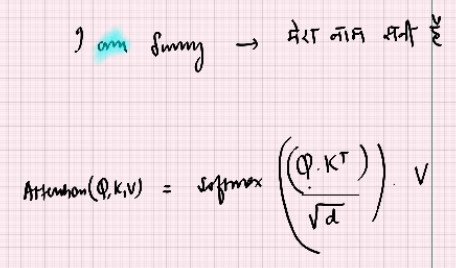 I am Sunny → मेरा नाम सनी है
Attention(Q,K,V) = softmax ((Q.K^T) / √d) . V